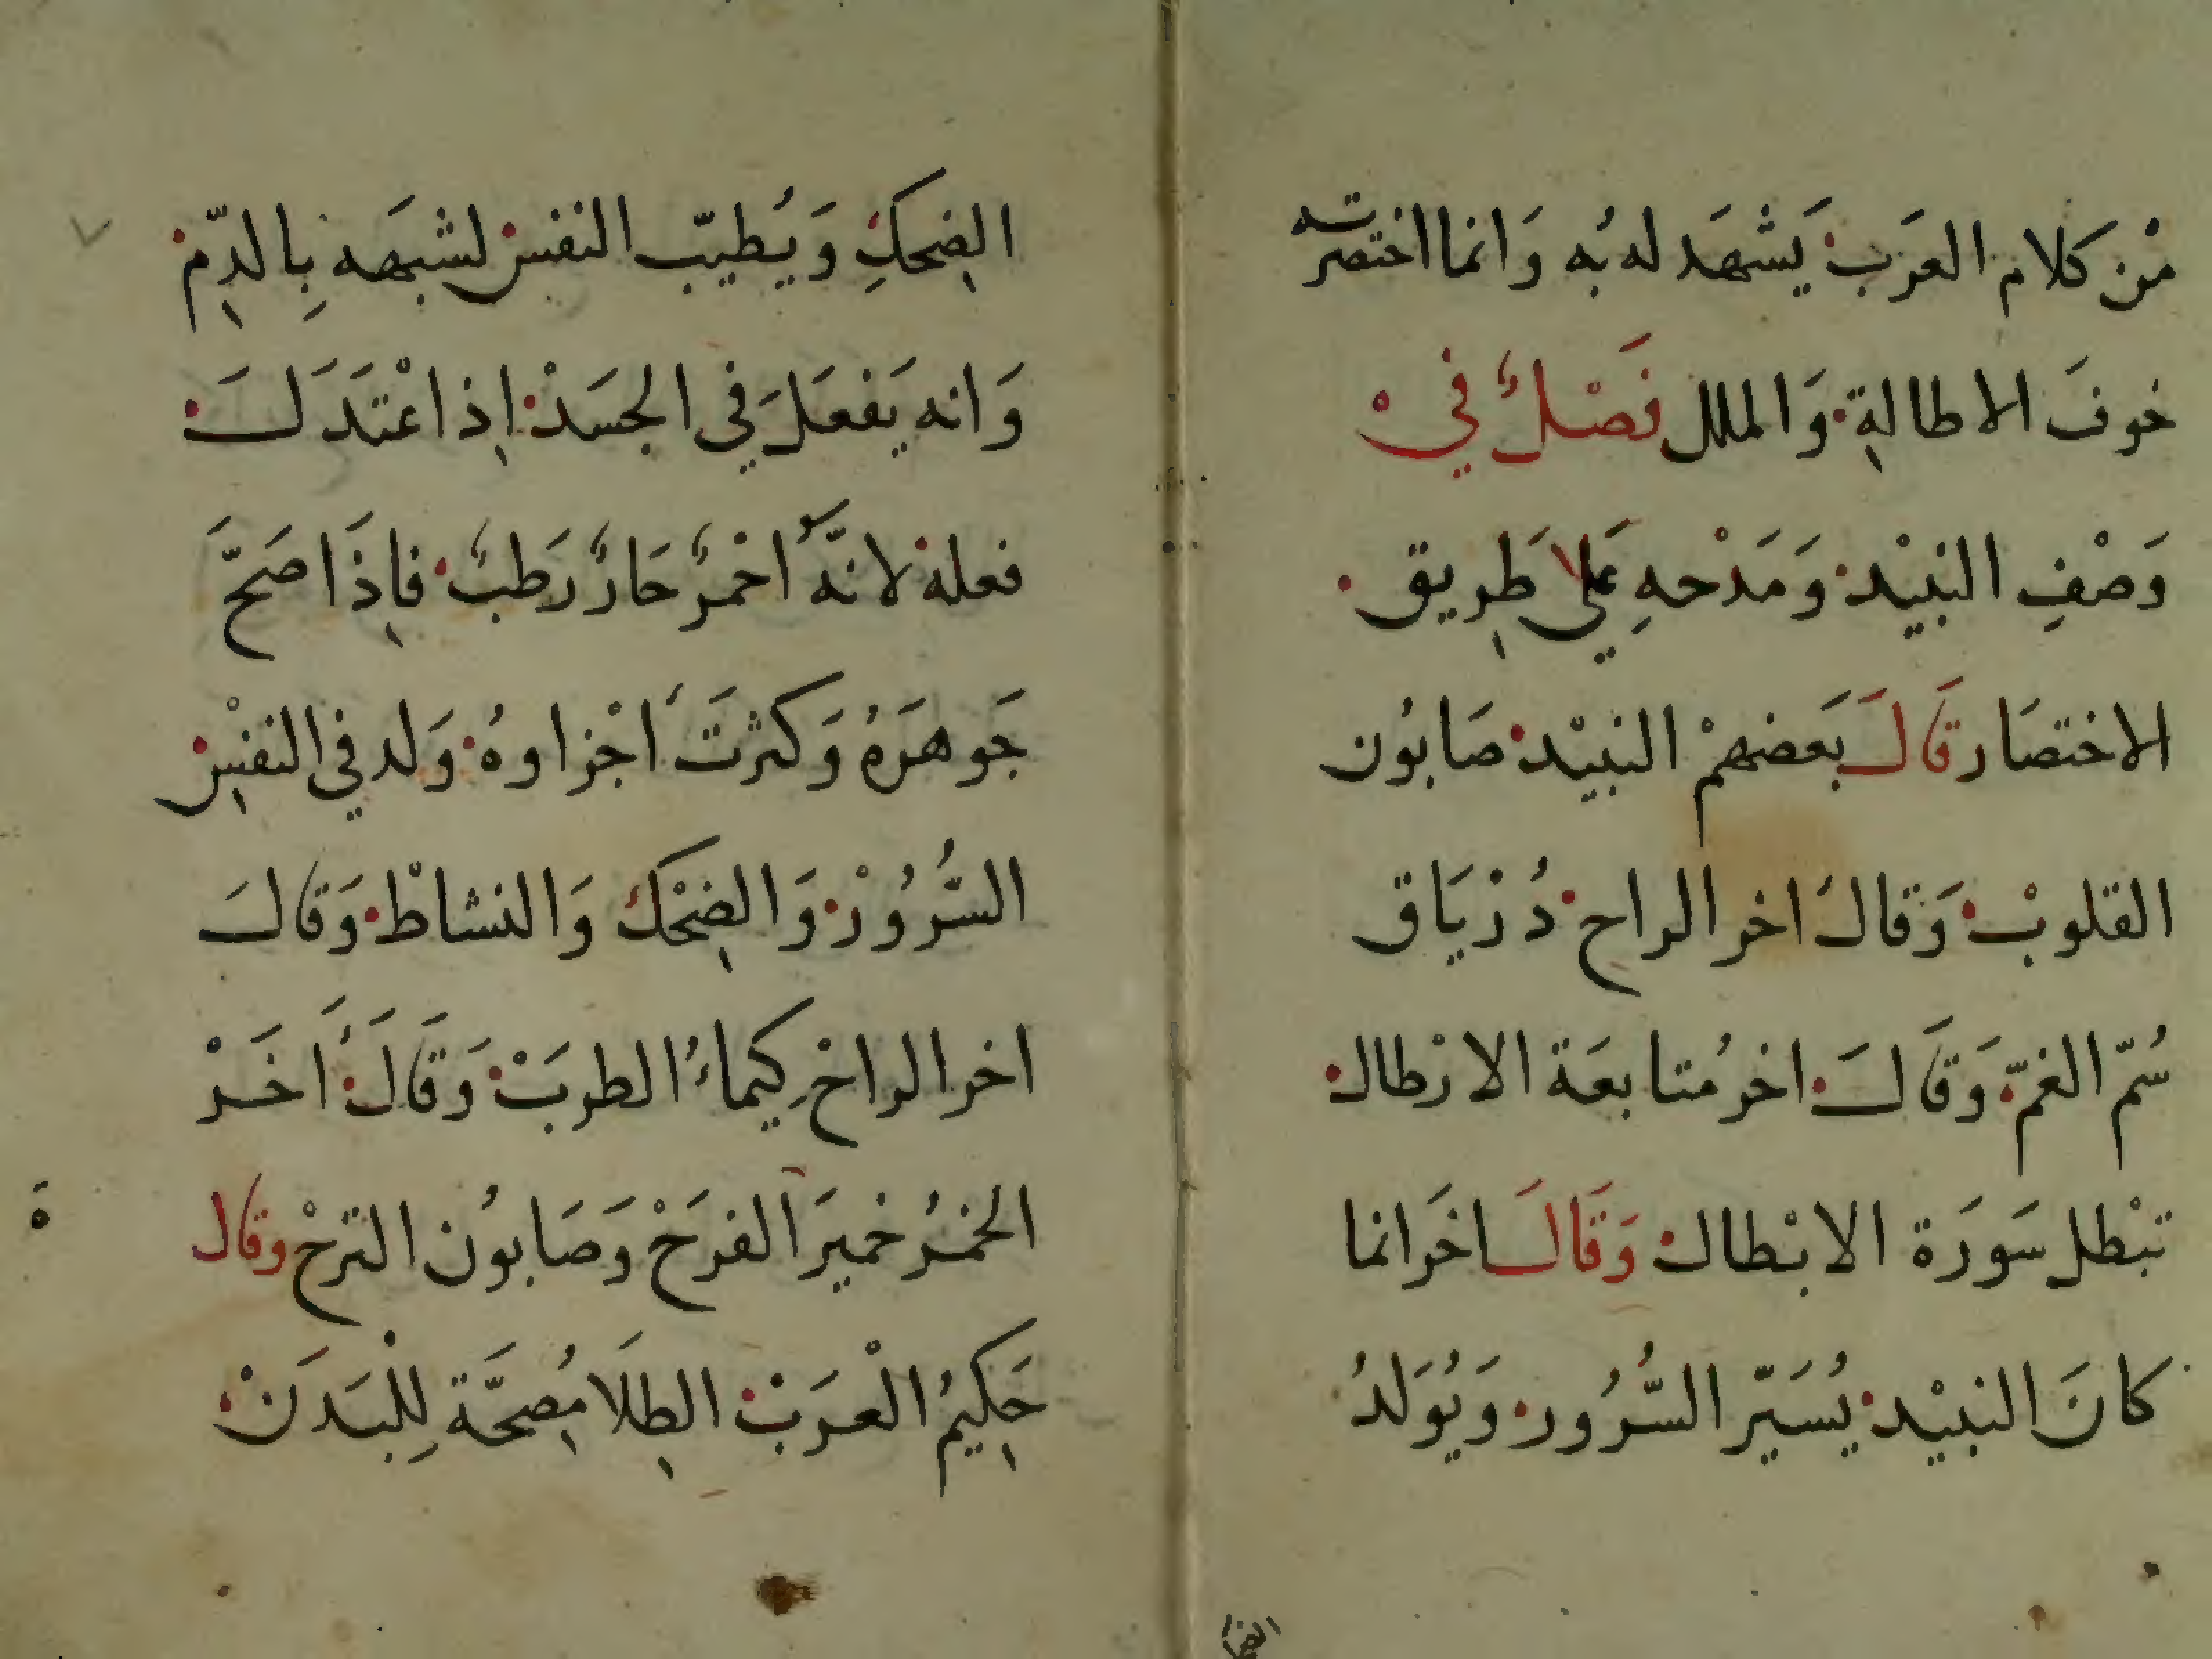 مْن كلام العَرَب يَشْهَد له بُه وَانما اختصرته
خوفَ الاطالةِ وَالملل فَصْلٌ فيْ
وَصْفِ النبيْد وَمَدْحهِ عَلي طَرِيق
الاختصَار قَالَ بَعضهمْ النبيْد صَابُون
القلوبْ وَقالَ اخر الراح دُرْيَاق
سُمّ الغمّ وَقَالَ اخر مُتابعَة الارْطال
تبْطل سَورَة الابْطال وَقَالَ اخَر انما
كانَ النبيْد يُسَيّر السُّرُور وَيُوَلدُ
الفحك
الضِحكِ وَيُطيّب النفس لشبهَه بِالدِّم
وَانه يَفعَل في الجسَدْ اِذ اعْتدَلَ
فعله لانَّهُ أحْمرٌ حَارٌ رَطبٌ فاِذَا صَحَّ
جَوهَرَهُ وَكثرتَ أجْزاوهُ وَلد في النفسِْ
السُّرُورْ وَالضِحْك وَالنشاطْ وَقالَ
اخر الراحْ كِيماءُ الطربَْ وَقَالَ أخَرْ
الخمْرُ خميرَ الفرَحْ وَصَابُون الترحْ وقال
حَكِيمُ الْعرَبْ الطِلَا مُصِحَّة لِلْبَدَنْ